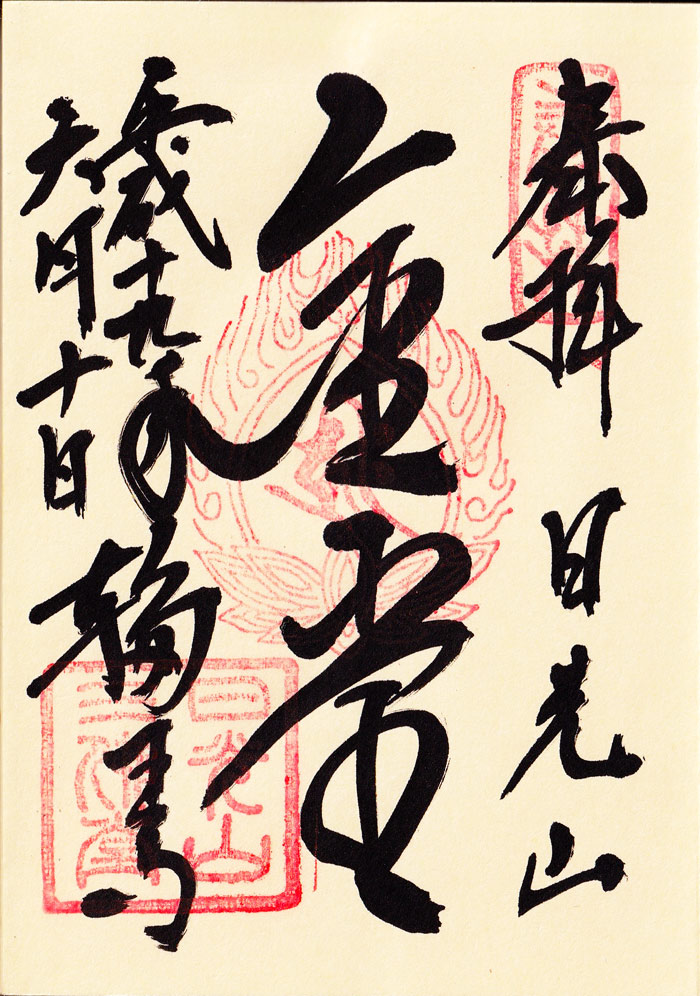 奉拝 日光山
金堂
平成十九年 輪王寺
六月十日
日光山
三佛堂